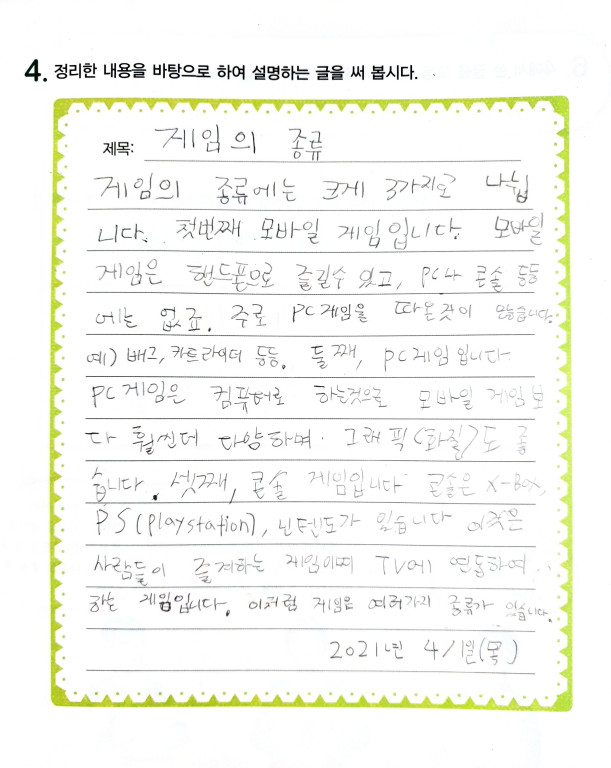 4. 정리한 내용을 바탕으로 하여 설명하는 글을 써 봅시다.
제목: 게임의 종류
게임의 종류에는 크게 3가지로 나뉩
니다. 첫번째 모바일 게임입니다. 모바일
게임은 핸드폰으로 즐길수 있고, PC나 콘솔 등등
에는 없죠. 주로 PC게임을 따온것이 많습니다.
예) 배그, 카트라이더 등등. 둘째, PC게임입니다
PC게임은 컴퓨터로 하는것으로 모바일 게임보
다 훨씬더 다양하며 그래픽(화질)도 좋
습니다. 셋째, 콘솔 게임입니다 콘솔은 X-Box,
PS(playstation), 닌텐도가 있습니다 이것은
사람들이 즐겨하는 게임이며 TV에 연동하여
하는 게임입니다. 이처럼 게임은 여러가지 종류가 있습니다.
2021년 4/1일(목)